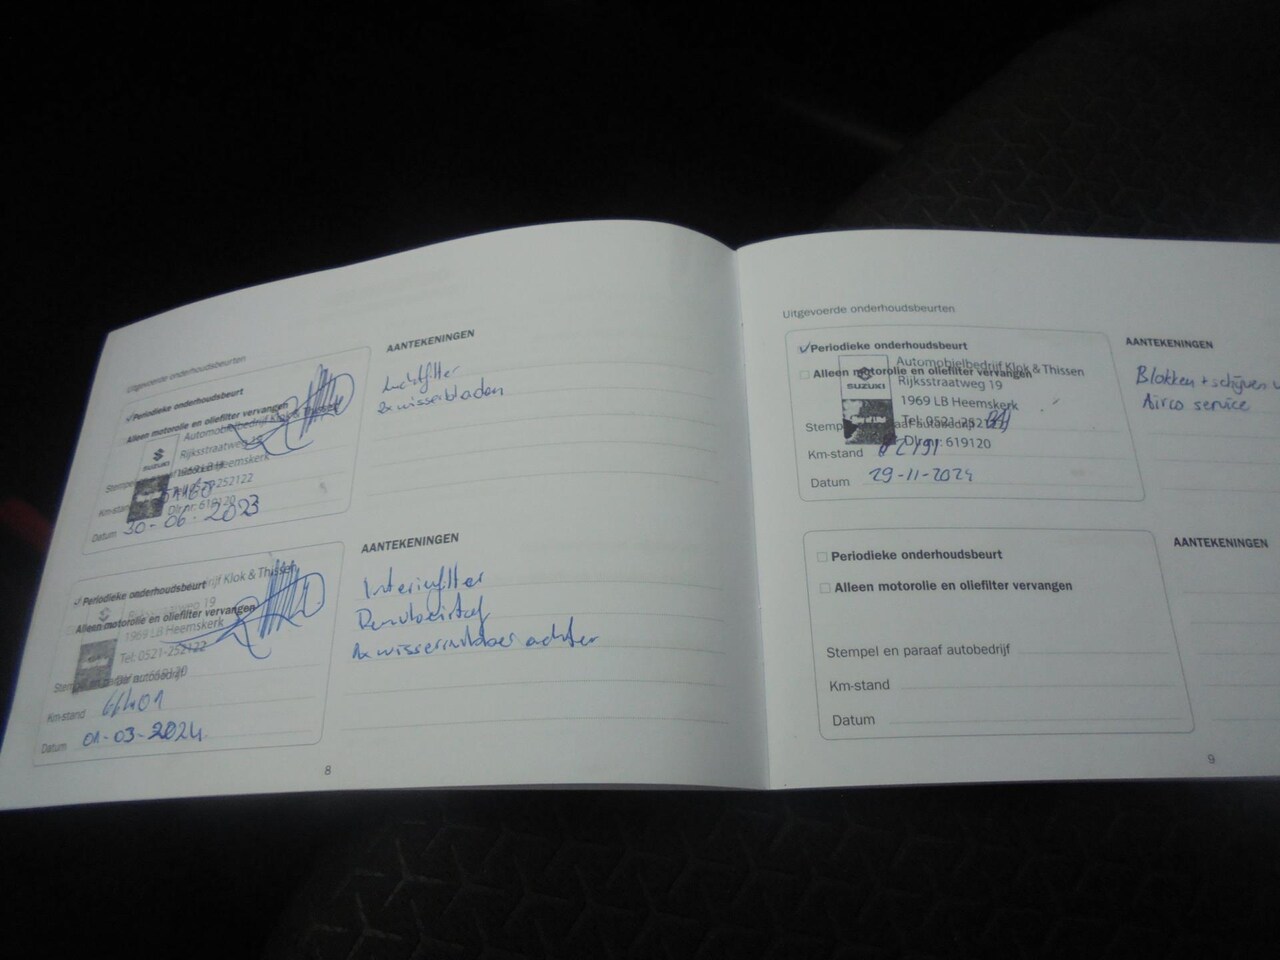 Uitgevoerde onderhoudsbeurten
✓ Periodieke onderhoudsbeurt
Alleen motorolie en oliefilter vervangen
Automobielbedrijf Klok & Thissen
SUZUKI
Rijksstraatweg 19
1969 LB Heemskerk
Dlr nr: 619120
Km-stand
Datum 30-06-2023
AANTEKENINGEN
Luchtfilter
2x wisserbladen
✓ Periodieke onderhoudsbeurt
Alleen motorolie en oliefilter vervangen
Klok & Thissen
Rijksstraatweg 19
1969 LB Heemskerk
Tel: 0521-252122
Stempel en paraaf autobedrijf
Km-stand 66401
Datum 01-03-2024
AANTEKENINGEN
Interieurfilter
1x wisserrubber achter
8
Uitgevoerde onderhoudsbeurten
✓ Periodieke onderhoudsbeurt
Alleen motorolie en oliefilter vervangen
Automobielbedrijf Klok & Thissen
SUZUKI
Rijksstraatweg 19
1969 LB Heemskerk
Tel: 0521-252122
Dlr nr: 619120
Km-stand
Datum 29-11-2024
AANTEKENINGEN
Blokken + schijven
Airco service
Periodieke onderhoudsbeurt
Alleen motorolie en oliefilter vervangen
Stempel en paraaf autobedrijf
Km-stand
Datum
AANTEKENINGEN
9